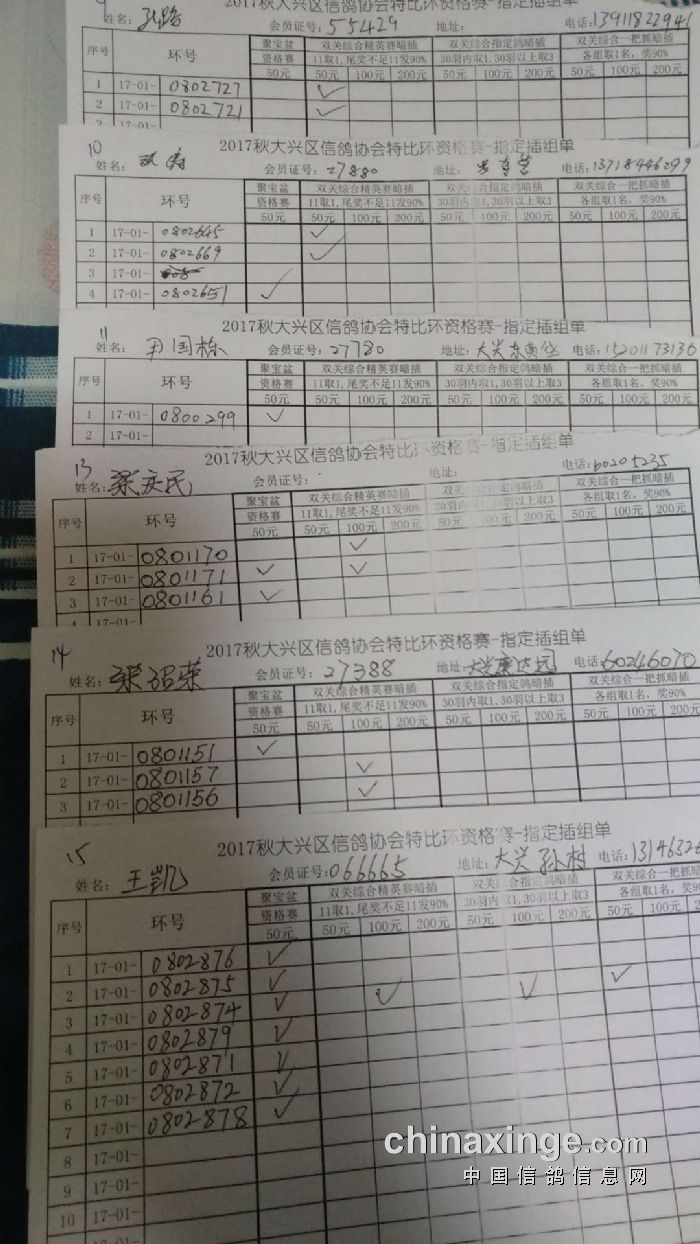 9 2017秋大兴区信鸽协会特比环资格赛-指定插组单
姓名: 孔路 会员证号: 55429 地址: 电话: 13911822941
序号 环号 聚宝盆 双关综合精英赛暗插 双关综合指定鸽暗插 双关综合一把抓暗插
资格赛 11取1,尾奖不足11发90% 30羽内取1,30羽以上取3 各组取1名,奖90%
50元 50元 100元 200元 50元 100元 200元 50元 100元 200元
1 17-01- 0802727 ✓
2 17-01- 0802721 ✓
3 17-01-
10 2017秋大兴区信鸽协会特比环资格赛-指定插组单
姓名: 会员证号: 27880 地址: 电话: 13718446299
序号 环号 聚宝盆 双关综合精英赛暗插 双关综合指定鸽暗插 双关综合一把抓暗插
资格赛 11取1,尾奖不足11发90% 30羽内取1,30羽以上取3 各组取1名,奖90%
50元 50元 100元 200元 50元 100元 200元 50元 100元 200元
1 17-01- 0802645 ✓
2 17-01- 0802669 ✓
3 17-01-
4 17-01- 0802651 ✓
11 2017秋大兴区信鸽协会特比环资格赛-指定插组单
姓名: 尹国栋 会员证号: 27780 地址: 大兴东黄垡 电话: 15201173136
序号 环号 聚宝盆 双关综合精英赛暗插 双关综合指定鸽暗插 双关综合一把抓暗插
资格赛 11取1,尾奖不足11发90% 30羽内取1,30羽以上取3 各组取1名,奖90%
50元 50元 100元 200元 50元 100元 200元 50元 100元 200元
1 17-01- 0800299 ✓
2 17-01-
13 2017秋大兴区信鸽协会特比环资格赛-指定插组单
姓名: 梁庆民 会员证号: 地址: 电话: 60205235
序号 环号 聚宝盆 双关综合精英赛暗插 双关综合指定鸽暗插 双关综合一把抓暗插
资格赛 11取1,尾奖不足11发90% 30羽内取1,30羽以上取3 各组取1名,奖90%
50元 50元 100元 200元 50元 100元 200元 50元 100元 200元
1 17-01- 0801170 ✓
2 17-01- 0801171 ✓ ✓
3 17-01- 0801161 ✓
4 17-01-
14 2017秋大兴区信鸽协会特比环资格赛-指定插组单
姓名: 梁绍荣 会员证号: 27388 地址: 大兴康庄园 电话: 60246070
序号 环号 聚宝盆 双关综合精英赛暗插 双关综合指定鸽暗插 双关综合一把抓暗插
资格赛 11取1,尾奖不足11发90% 30羽内取1,30羽以上取3 各组取1名,奖90%
50元 50元 100元 200元 50元 100元 200元 50元 100元 200元
1 17-01- 0801151 ✓
2 17-01- 0801157 ✓
3 17-01- 0801156 ✓
15 2017秋大兴区信鸽协会特比环资格赛-指定插组单
姓名: 王凯 会员证号: 066665 地址: 大兴孙村 电话: 13146326
序号 环号 聚宝盆 双关综合精英赛暗插 双关综合指定鸽暗插 双关综合一把抓暗插
资格赛 11取1,尾奖不足11发90% 30羽内取1,30羽以上取3 各组取1名,奖90%
50元 50元 100元 200元 50元 100元 200元 50元 100元 200元
1 17-01- 0802876 ✓
2 17-01- 0802875 ✓ ✓ ✓ ✓
3 17-01- 0802874 ✓
4 17-01- 0802879 ✓
5 17-01- 0802871 ✓
6 17-01- 0802872 ✓
7 17-01- 0802878 ✓
8 17-01-
9 17-01-
10 17-01-
chinaxinge.com
中国信鸽信息网